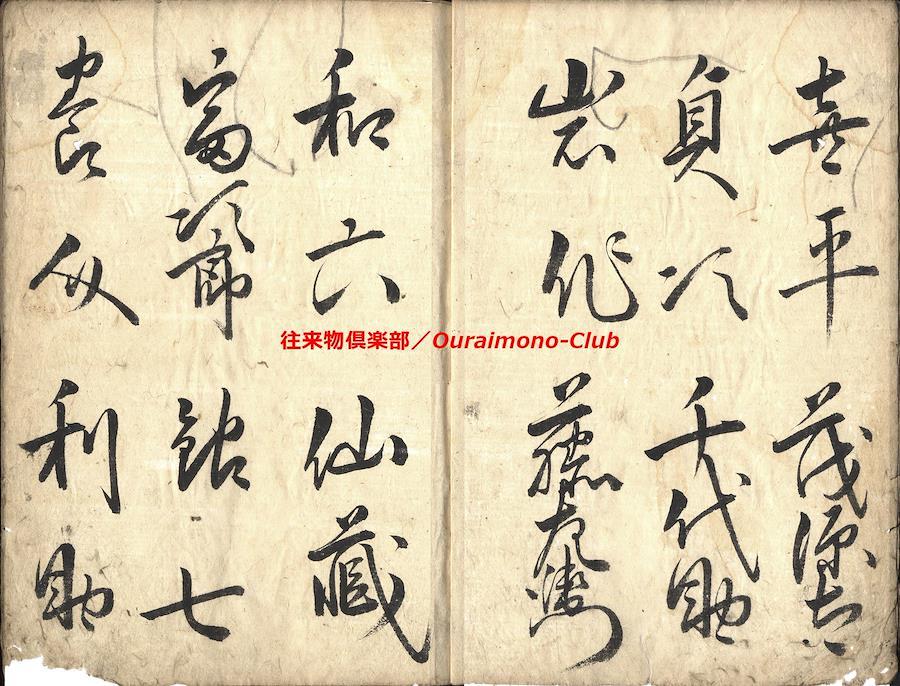 喜平 茂源太
貞次 千代助
岩作 藤左衛門
和六 仙藏
富次郎 銀七
利助
往来物倶楽部／Ouraimono-Club